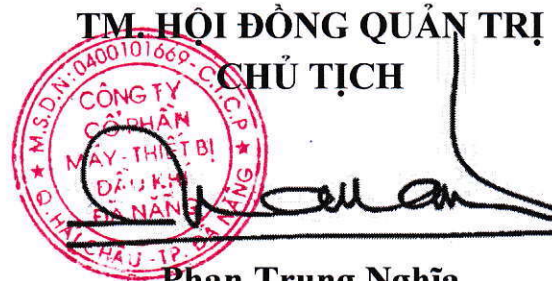 TM. HỘI ĐỒNG QUẢN TRỊ
CHỦ TỊCH
M.S.D.N: 0400101669 - C.T.C.P
CÔNG TY
CỔ PHẦN
MÁY - THIẾT BỊ
DẦU KHÍ
ĐÀ NẴNG
Q. HẢI CHÂU - TP. ĐÀ NẴNG
Phan Trung Nghĩa